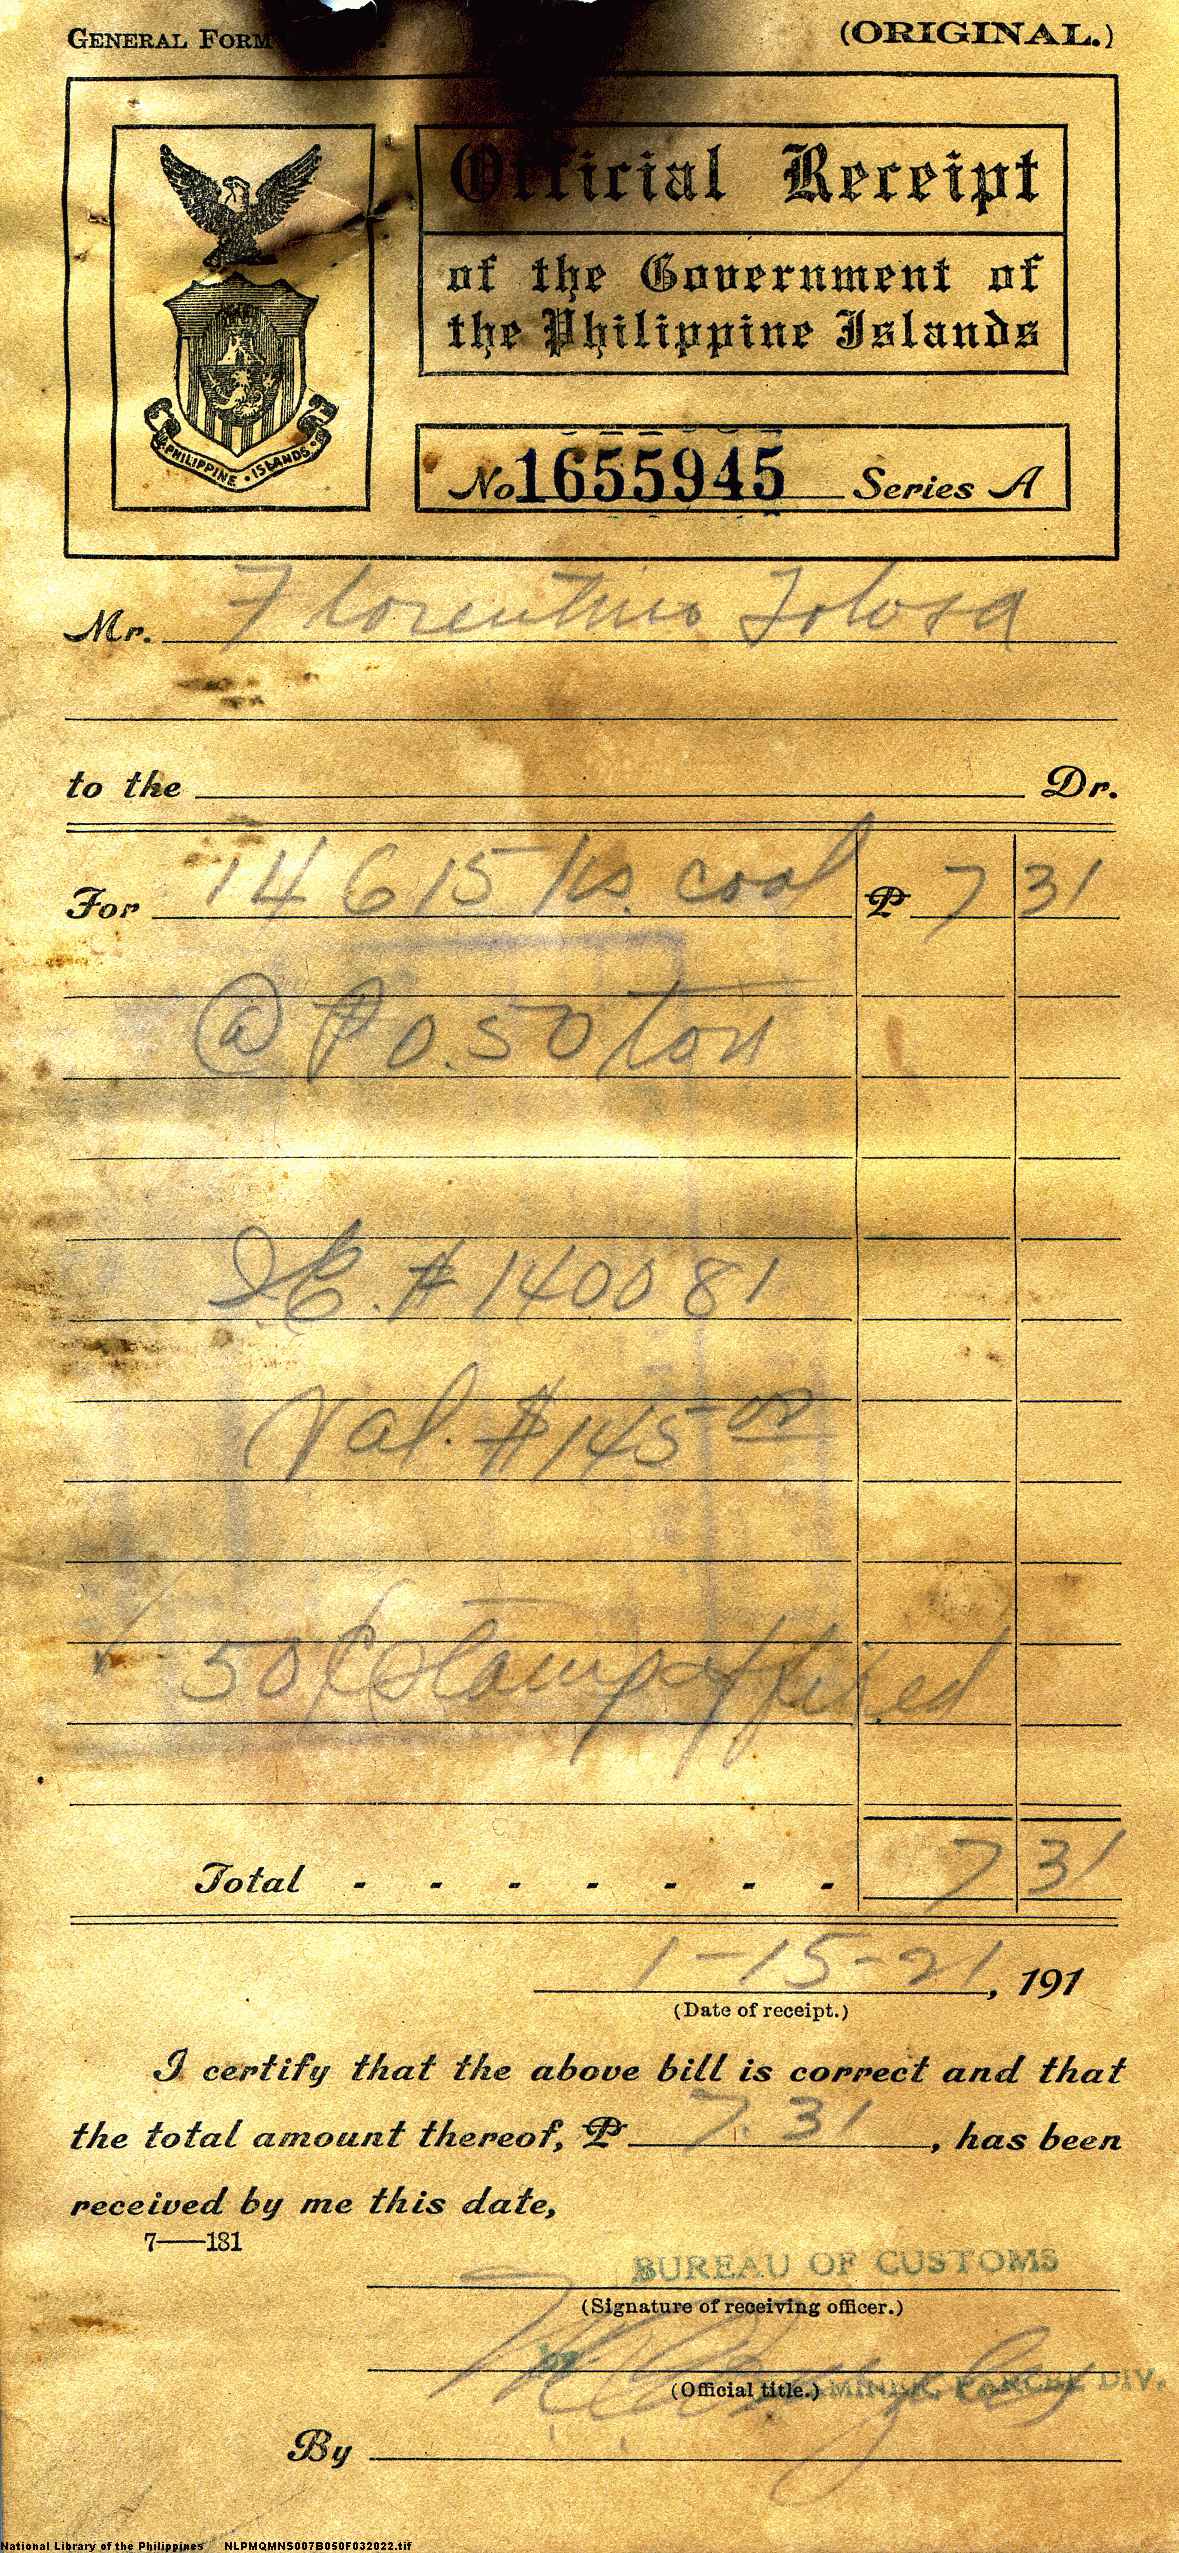 GENERAL FORM
(ORIGINAL.)
Official Receipt
of the Government of
the Philippine Islands
PHILIPPINE · ISLANDS
No. 1655945 Series A
Mr. Florentino Tolosa
to the Dr.
For 14615 ks. coal ₱ 7 31
@ ₱0.50 ton
I.E. # 140081
Val. $145 00
50¢ stamp affixed
Total - - - - - - - 7 31
1-15-21, 191
(Date of receipt.)
I certify that the above bill is correct and that
the total amount thereof, ₱ 7.31, has been
received by me this date,
7——131
BUREAU OF CUSTOMS
(Signature of receiving officer.)
by
(Official title.) MINER, PARCEL DIV.
By
National Library of the Philippines NLPMQMNS007B050F032022.tif